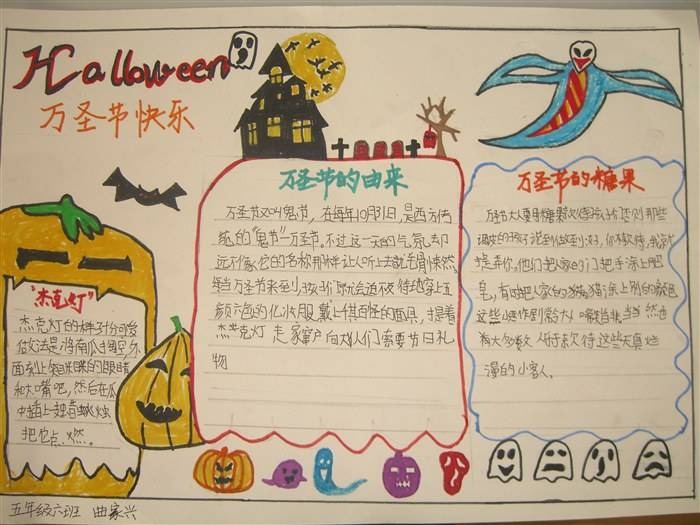 Halloween
万圣节快乐
万圣节的由来
万圣节又叫鬼节，在每年10月31日，是西方传
统的"鬼节"万圣节，不过这一天的气氛却
远不像它的名称那样让人听上去就毛骨悚然。
每当万圣节来到，孩子们都会迫不及待地穿上五
颜六色的化妆服，戴上千奇百怪的面具，提着
杰克灯 走家窜户向大人们索要节日礼
物
万圣节的糖果
万圣节大人要用糖果
调皮的孩子说到做到：好，你不款待，我就
捉弄你。他们把人家的门把手涂上肥
皂，有时把人家的猫涂上别的颜色
这些小恶作剧常令大人啼笑皆非，当然也
有大多数人乐于款待这些天真烂
漫的小客人。
"杰克灯"
杰克灯的样子十分可爱
做法是将南瓜掏空，外
面刻上笑眯眯的眼睛
和大嘴吧，然后在瓜
中插上一支蜡烛
把它点燃。
五年级六班 曲家兴